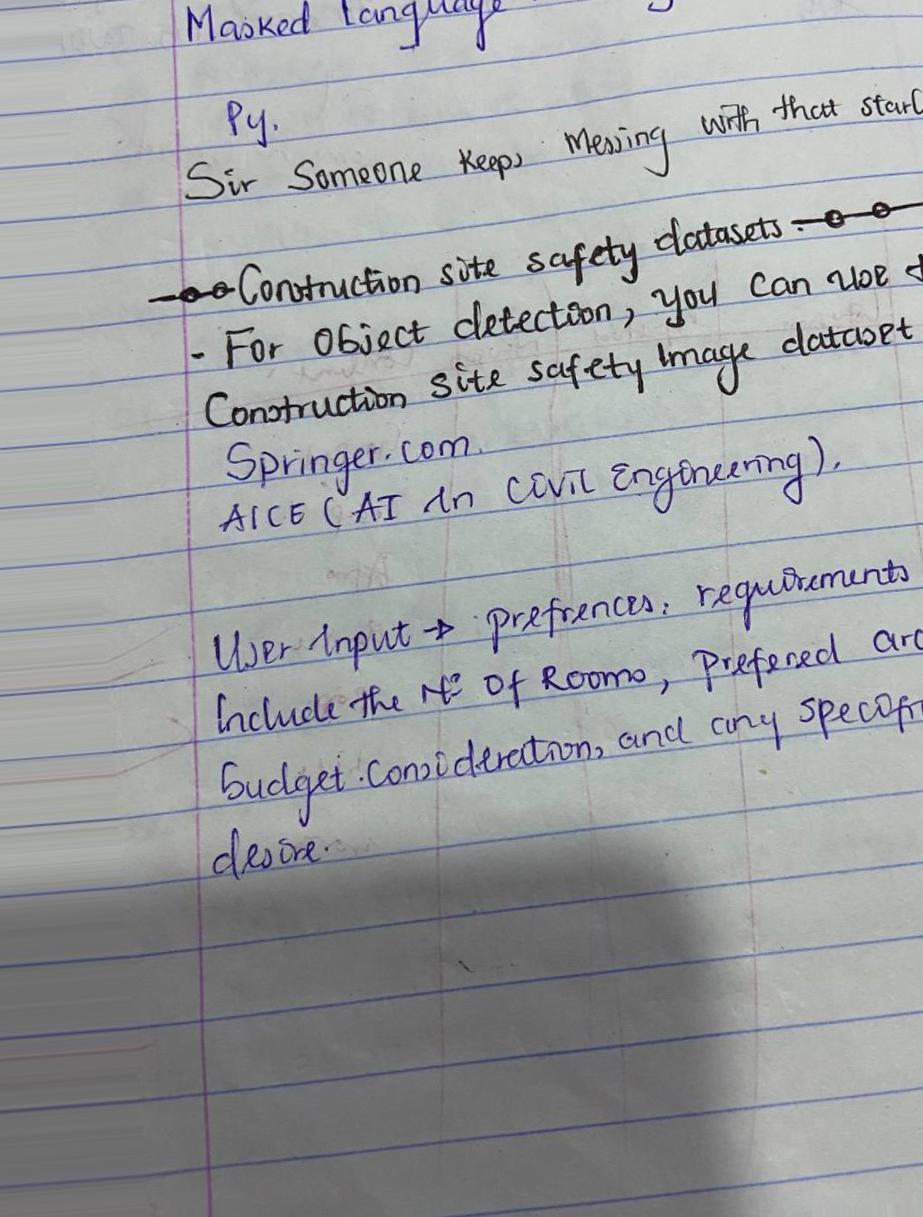 Masked Language
Py.
Sir Someone Keeps Messing with that
Construction site safety datasets
- For Object detection, you can use
Construction site safety Image dataset
Springer.com.
AICE (AI in Civil Engineering).
User Input → prefrences, requirements
Include the Nº Of Rooms, Prefered
budget consideration, and any
desire.